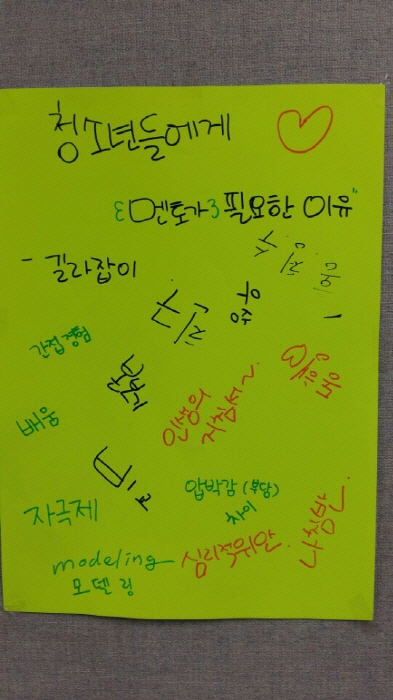 청소년들에게
멘토가 필요한 이유"
- 길라잡이
우정
간접경험
본보기
인생의
지침서~
배움
자극제
압박감 (부담)
차이
modeling
모델링
심리적위안
나침반